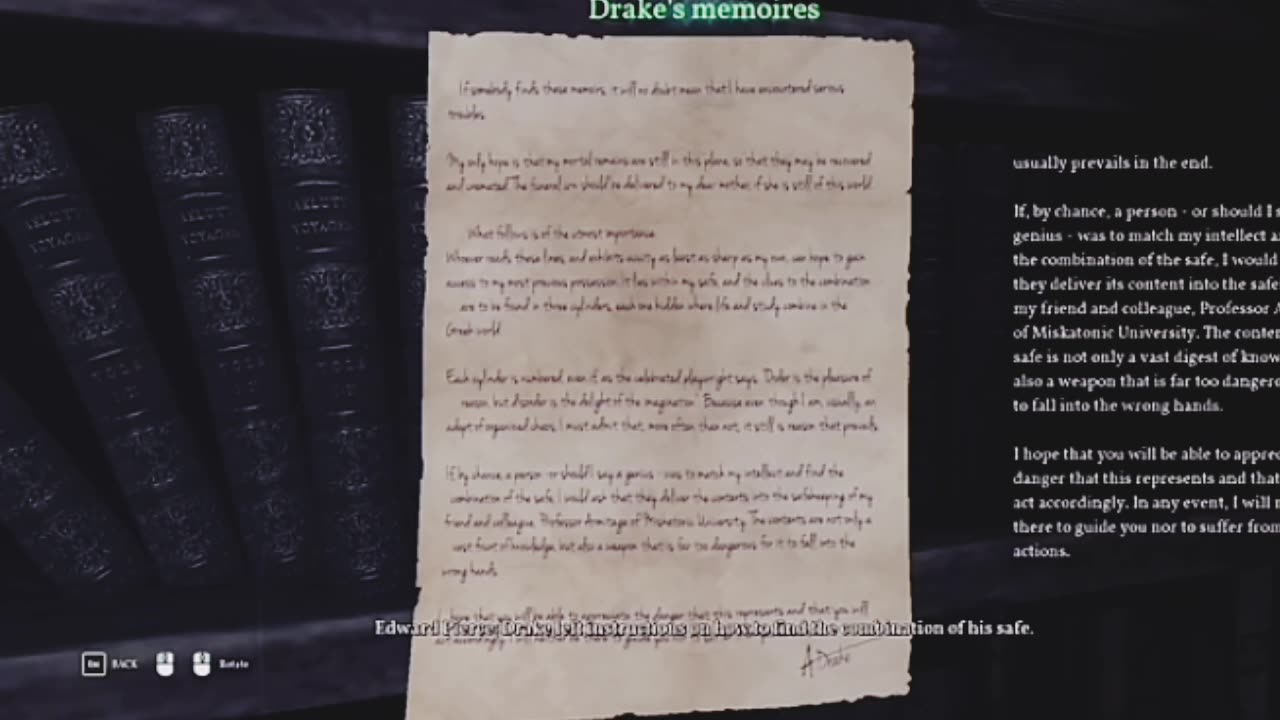 Drake's memoires
If somebody finds these memoirs, it will no doubt mean that I have encountered serious
troubles.
My only hope is that my mortal remains are still in this plane, so that they may be recovered
and cremated. The funeral urn should be delivered to my dear mother, if she is still of this world.
What follows is of the utmost importance.
Whoever reads these lines, and exhibits acuity as least as sharp as my own, can hope to gain
access to my most precious possession. It lies within my safe, and the clues to the combination
are to be found in three cylinders, each one hidden where life and study combine in the
Greek world.
Each cylinder is numbered, even if, as the celebrated playwright says, "Order is the pleasure of
reason, but disorder is the delight of the imagination." Because even though I am, usually, an
adept of organized chaos, I must admit that, more often than not, it still is reason that prevails.
If, by chance, a person - or should I say a genius - was to match my intellect and find the
combination of the safe, I would ask that they deliver the contents into the safekeeping of my
friend and colleague, Professor Armitage of Miskatonic University. The contents are not only a
vast fount of knowledge, but also a weapon that is far too dangerous for it to fall into the
wrong hands.
I hope that you will be able to appreciate the danger that this represents and that you will
A Drake
usually prevails in the end.
If, by chance, a person - or should I s
genius - was to match my intellect a
the combination of the safe, I would
they deliver its content into the safe
my friend and colleague, Professor A
of Miskatonic University. The conten
safe is not only a vast digest of know
also a weapon that is far too dangero
to fall into the wrong hands.
I hope that you will be able to apprec
danger that this represents and that
act accordingly. In any event, I will n
there to guide you nor to suffer from
actions.
Edward Pierce: Drake left instructions on how to find the combination of his safe.
BACK Rotate